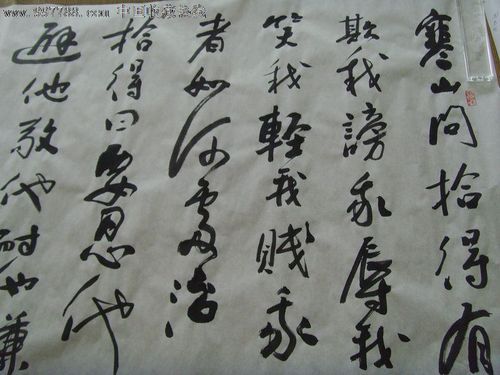 www.997788.com 中国收藏热线
寒山問拾得有
欺我謗我辱我
笑我輕我賤我
者如何處治
拾得曰要忍他
避他敬他耐他